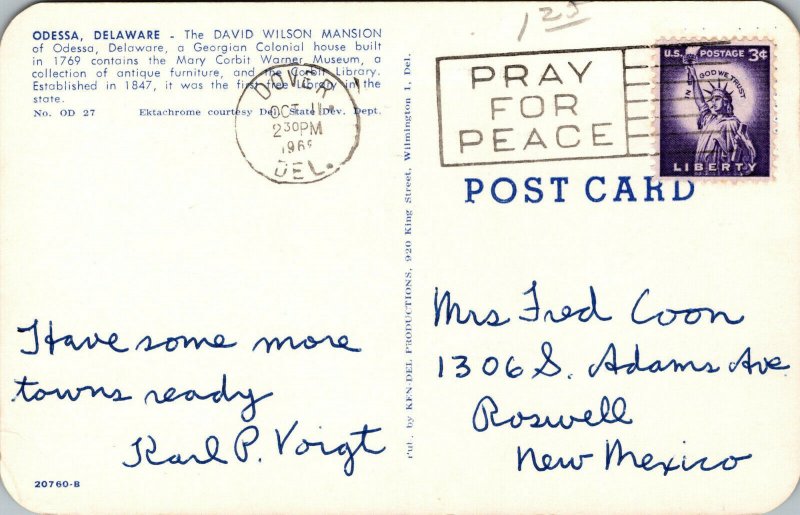 ODESSA, DELAWARE - The DAVID WILSON MANSION
of Odessa, Delaware, a Georgian Colonial house built
in 1769 contains the Mary Corbit Warner Museum, a
collection of antique furniture, and the Corbit Library.
Established in 1847, it was the first free library in the
state.
No. OD 27 Ektachrome courtesy Del. State Dev. Dept.
DOVER
OCT 11
230PM
DEL.
125
PRAY
FOR
PEACE
U.S. POSTAGE 3¢
IN GOD WE TRUST
LIBERTY
POST CARD
Pub. by KEN-DEL PRODUCTIONS, 920 King Street, Wilmington 1, Del.
Have some more
towns ready
Karl P. Voigt
20760-B
Mrs Fred Coon
1306 S. Adams Ave.
Roswell
New Mexico